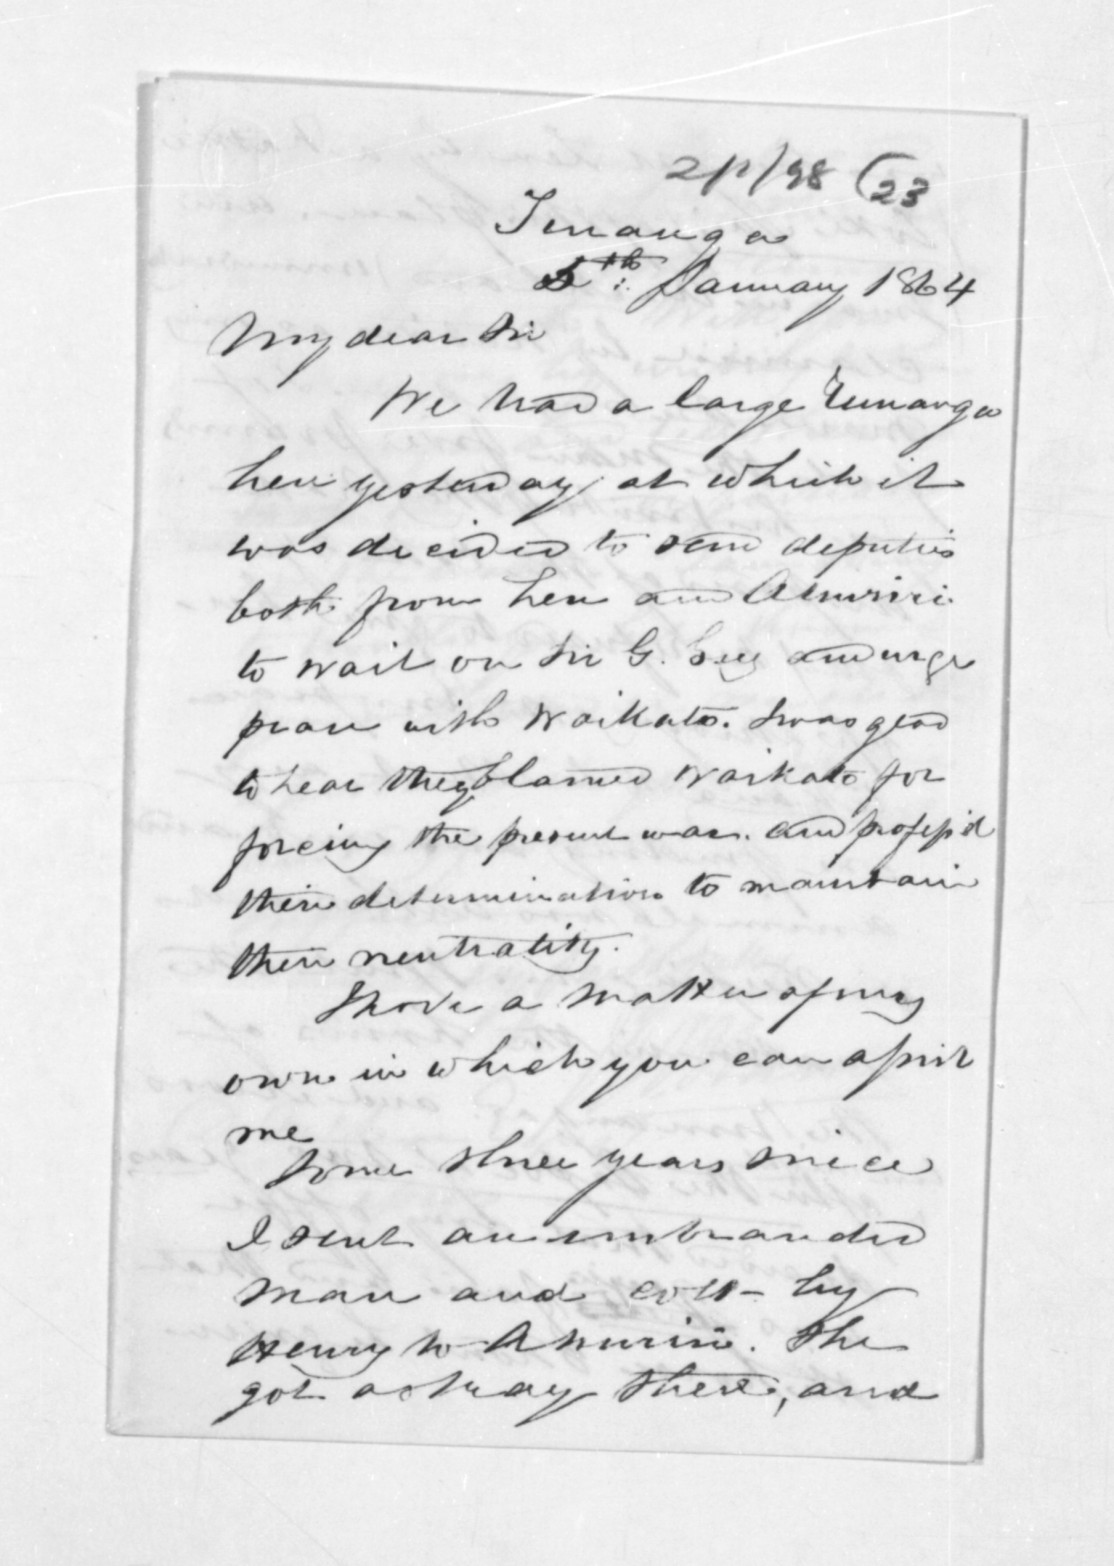 (23
Tunanga
5th January 1864
My dear Sir
We had a large Runanga
here yesterday, at which it
was decided to send deputies
both from here and Ahuriri
to wait on Sir G. Grey and urge
peace with Waikato. I was glad
to hear they blamed Waikato for
forcing the present war. and profess'd
their determination to maintain
their neutrality.
I have a matter of my
own in which you can assist
me
Some three years since
I sent an unbranded
mare and colt - by
Henry to Ahuriri. She
got astray there, and